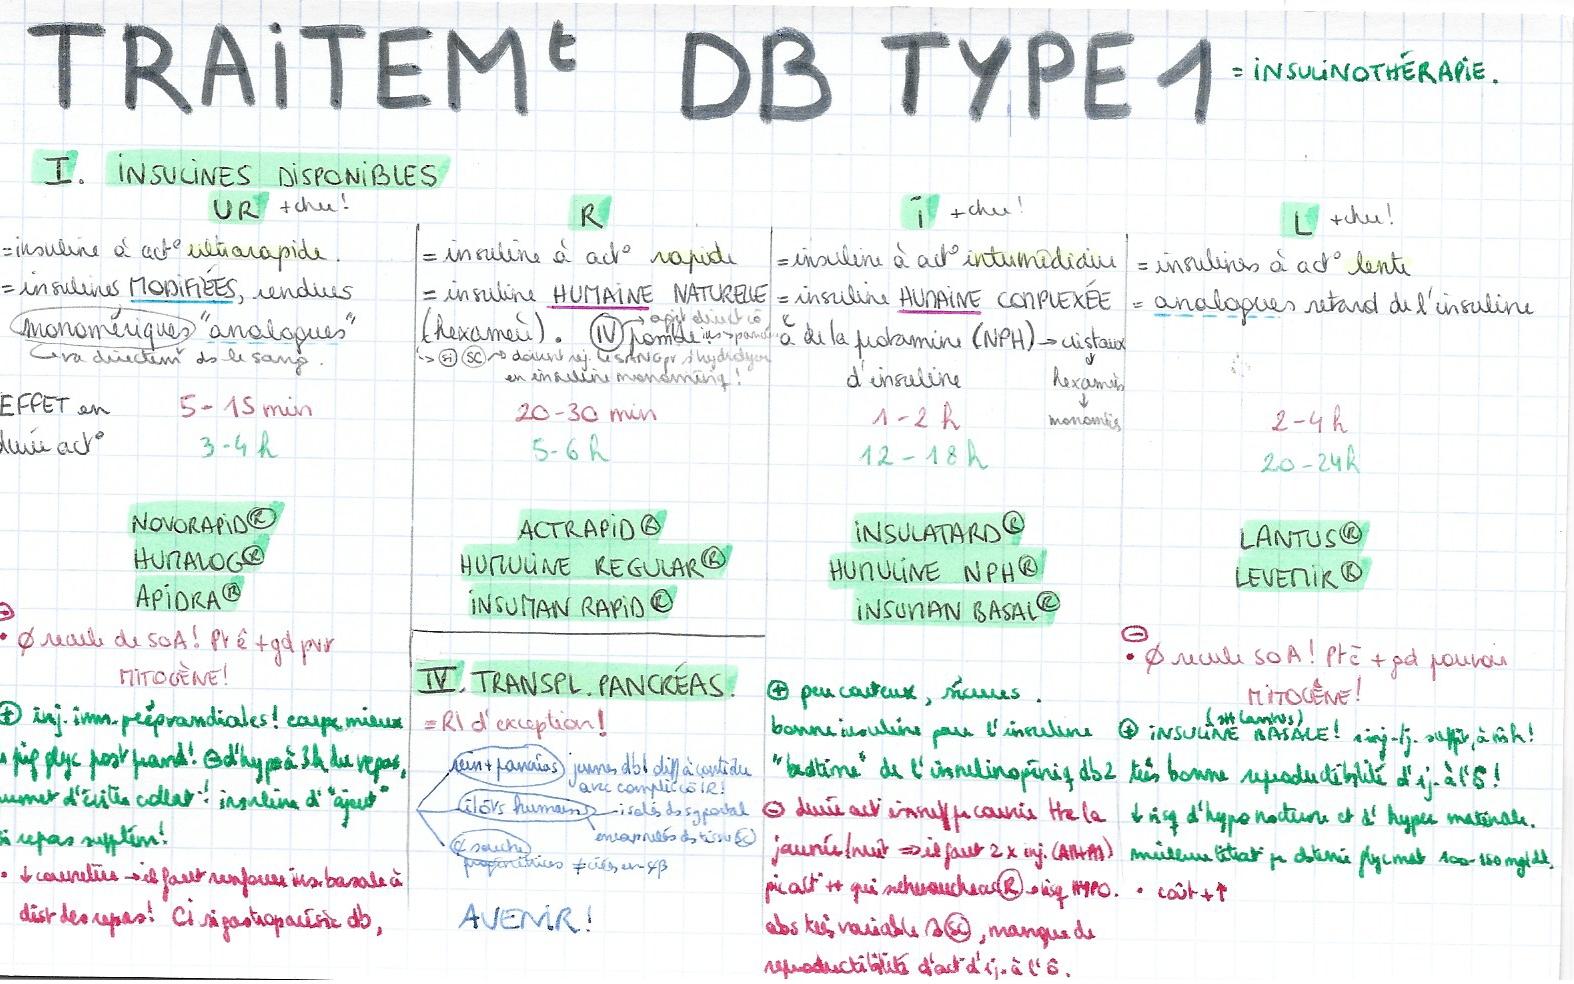 TRAITEMt DB TYPE 1 = INSULINOTHÉRAPIE.
I. INSULINES DISPONIBLES
UR +cher!
= insuline à act° ultrarapide.
= insulines MODIFIÉES, rendues
monomériques "analogues"
va directem ds le sang.
EFFET en 5-15 min
durée act° 3-4 h
NOVORAPID®
HUMALOG®
APIDRA®
⊖
• Ø recule de SOA! Pt ê +gd pvr
MITOGÈNE!
⊕ inj. imm. préprandiales! coupe mieux
pig glyc post prand! ⊖ d'hypo à 3h du repas,
permet d'éviter collat°! insuline d'"ajout"
si repas supplém!
• ↓ courte → il faut renforcer ins. basale à
dist des repas! CI si gastroparésie db,
R
= insuline à act° rapide
= insuline HUMAINE NATURELLE
(hexamère). IV possible
↳ si SC → doivent
en insuline monomériq!
20-30 min
5-6 h
ACTRAPID®
HUMULINE REGULAR®
INSUMAN RAPID®
IV. TRANSPL. PANCRÉAS.
= RI d'exception!
rein + pancréas jeunes db1 diff à contrôler
avec complic° IR!
îlots humains isolés ds syst portal
encapsulés ds tissu SC
¢ souche
progénitrices ≠ciées en ¢β
AVENIR!
i +cher!
= insuline à act° intermédiaire
= insuline HUMAINE COMPLEXÉE
à de la protamine (NPH) → cristaux
d'insuline
↓
hexamères
↓
monomères
1-2 h
12-18 h
INSULATARD®
HUMULINE NPH®
INSUMAN BASAL®
⊕ peu couteux, sûres.
bonne insuline pour l'insuline
"bedtime" de l'insulinopéniq db2
⊖ durée act° insuff pr couvrir tte la
journée/nuit => il faut 2 x inj. (AM+PM)
pic act° ++ qui se chevauche avec R → risq HYPO.
abs très variable SC, manque de
reproductibilité d'act° d'1 j. à l'ô.
L +cher!
= insulines à act° lente
= analogues retard de l'insuline
2-4 h
20-24h
LANTUS®
LEVEMIR®
⊖
• Ø recule SOA! Pt ê + gd pouvoir
MITOGÈNE!
(Lantus)
⊕ INSULINE BASALE! 1 inj./j. suffit, à m̂ h!
très bonne reproductibilité d'1 j. à l'ô!
↓ risq d'hypo nocturne et d'hyper matinale.
meilleure titrat° pr obtenir glyc mat 100-150 mg/dL.
• coût +↑